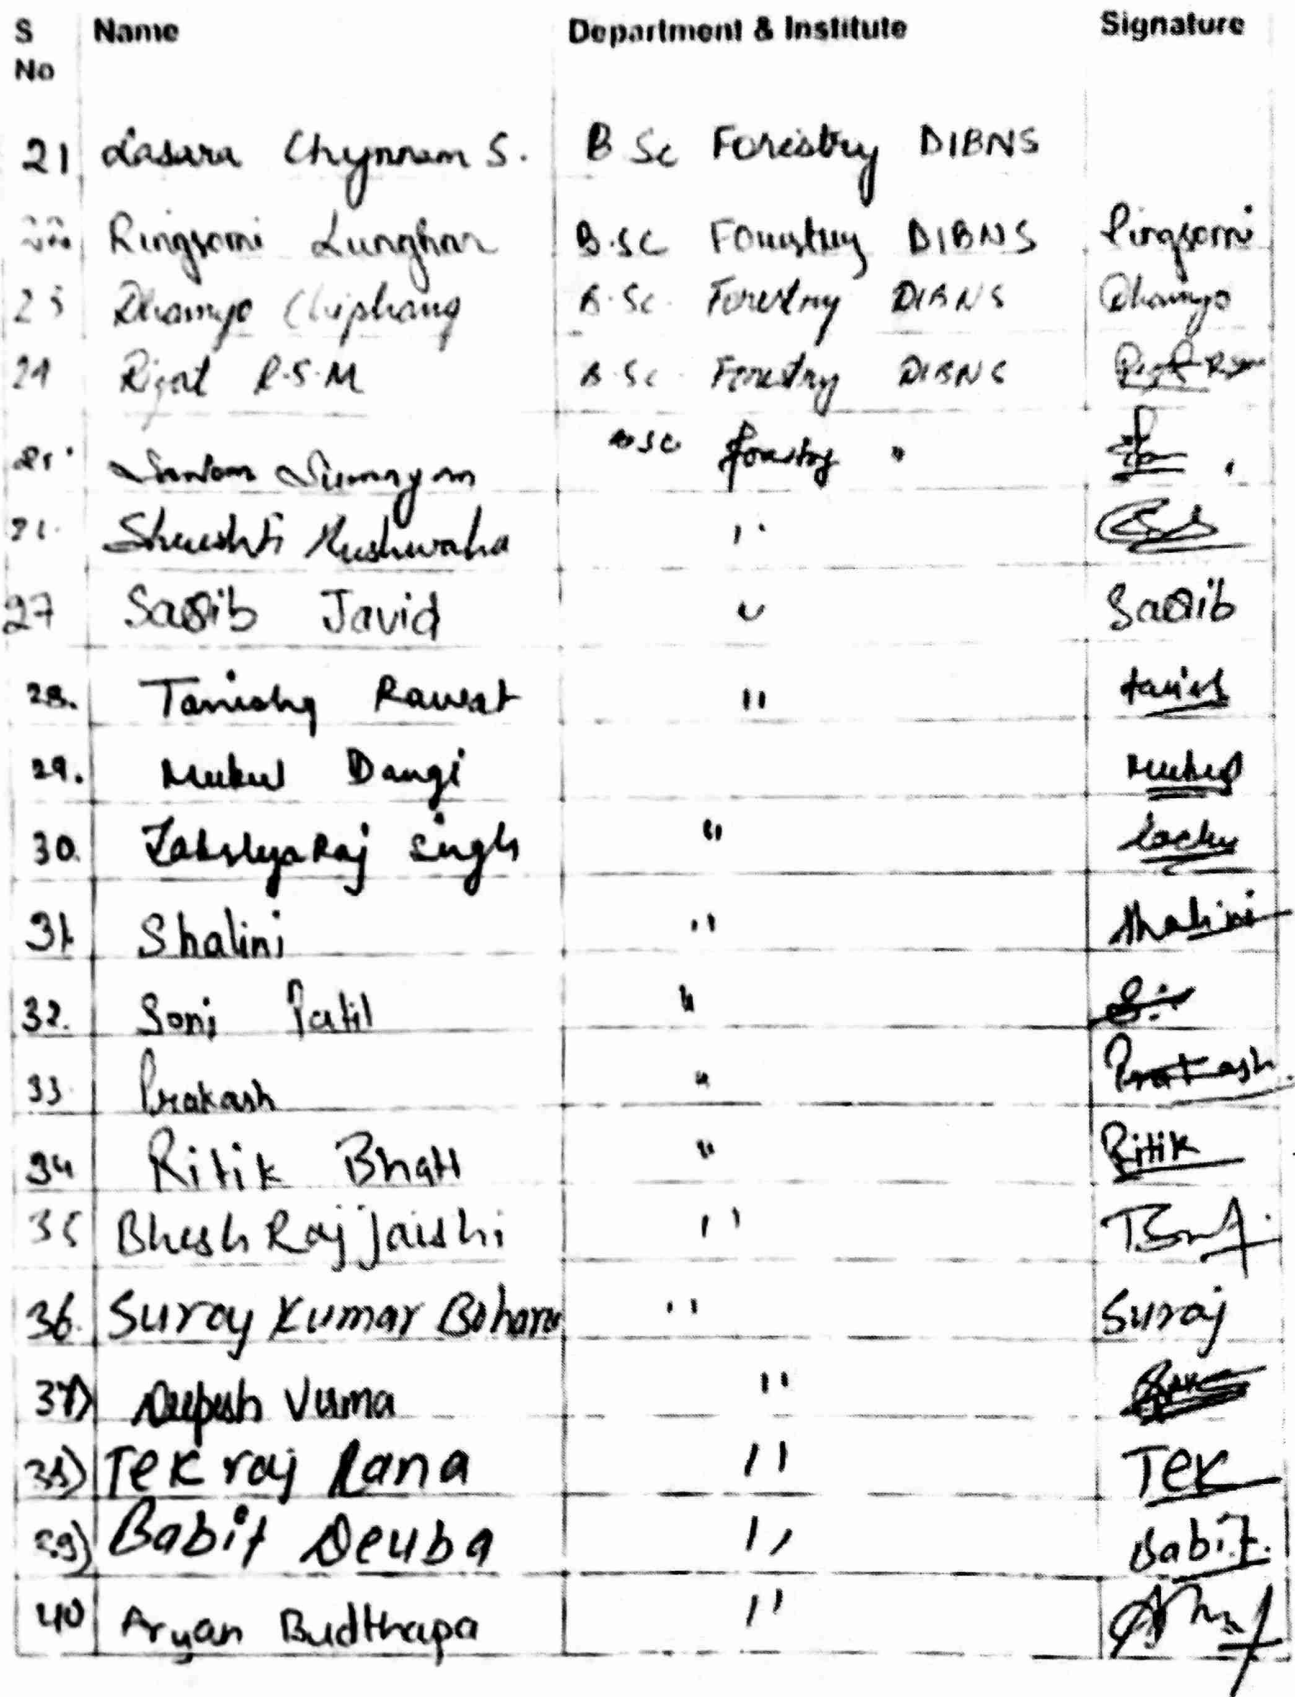 S No Name Department & Institute Signature
21 Lasara Chynnam S. B Sc Forestry DIBNS
22 Ringsomi Lunghar B.SC Forestry DIBNS Ringsomi
23 Dhamyo Chiphang B.Sc. Forestry DIBNS Dhamyo
24 R.S.M B.Sc. Forestry DIBNS
25. BSC forestry "
26. Shrushti Kushwaha "
27 SaQib Javid " SaQib
28. Tanishq Rawat " tanish
29. Mukul Dangi Mukul
30. LakshyaRaj Singh " Lacky
31. Shalini " Shalini
32. Soni Patil "
33. Prakash " Prakash.
34 Ritik Bhatt " Ritik
35 Bhesh Raj Jaishi "
36. Suraj Kumar Bohara " Suraj
37) Deepesh Verma "
38) Tek raj Rana " Tek
39) Babit Deuba " Babit.
40 Aryan Budthapa "